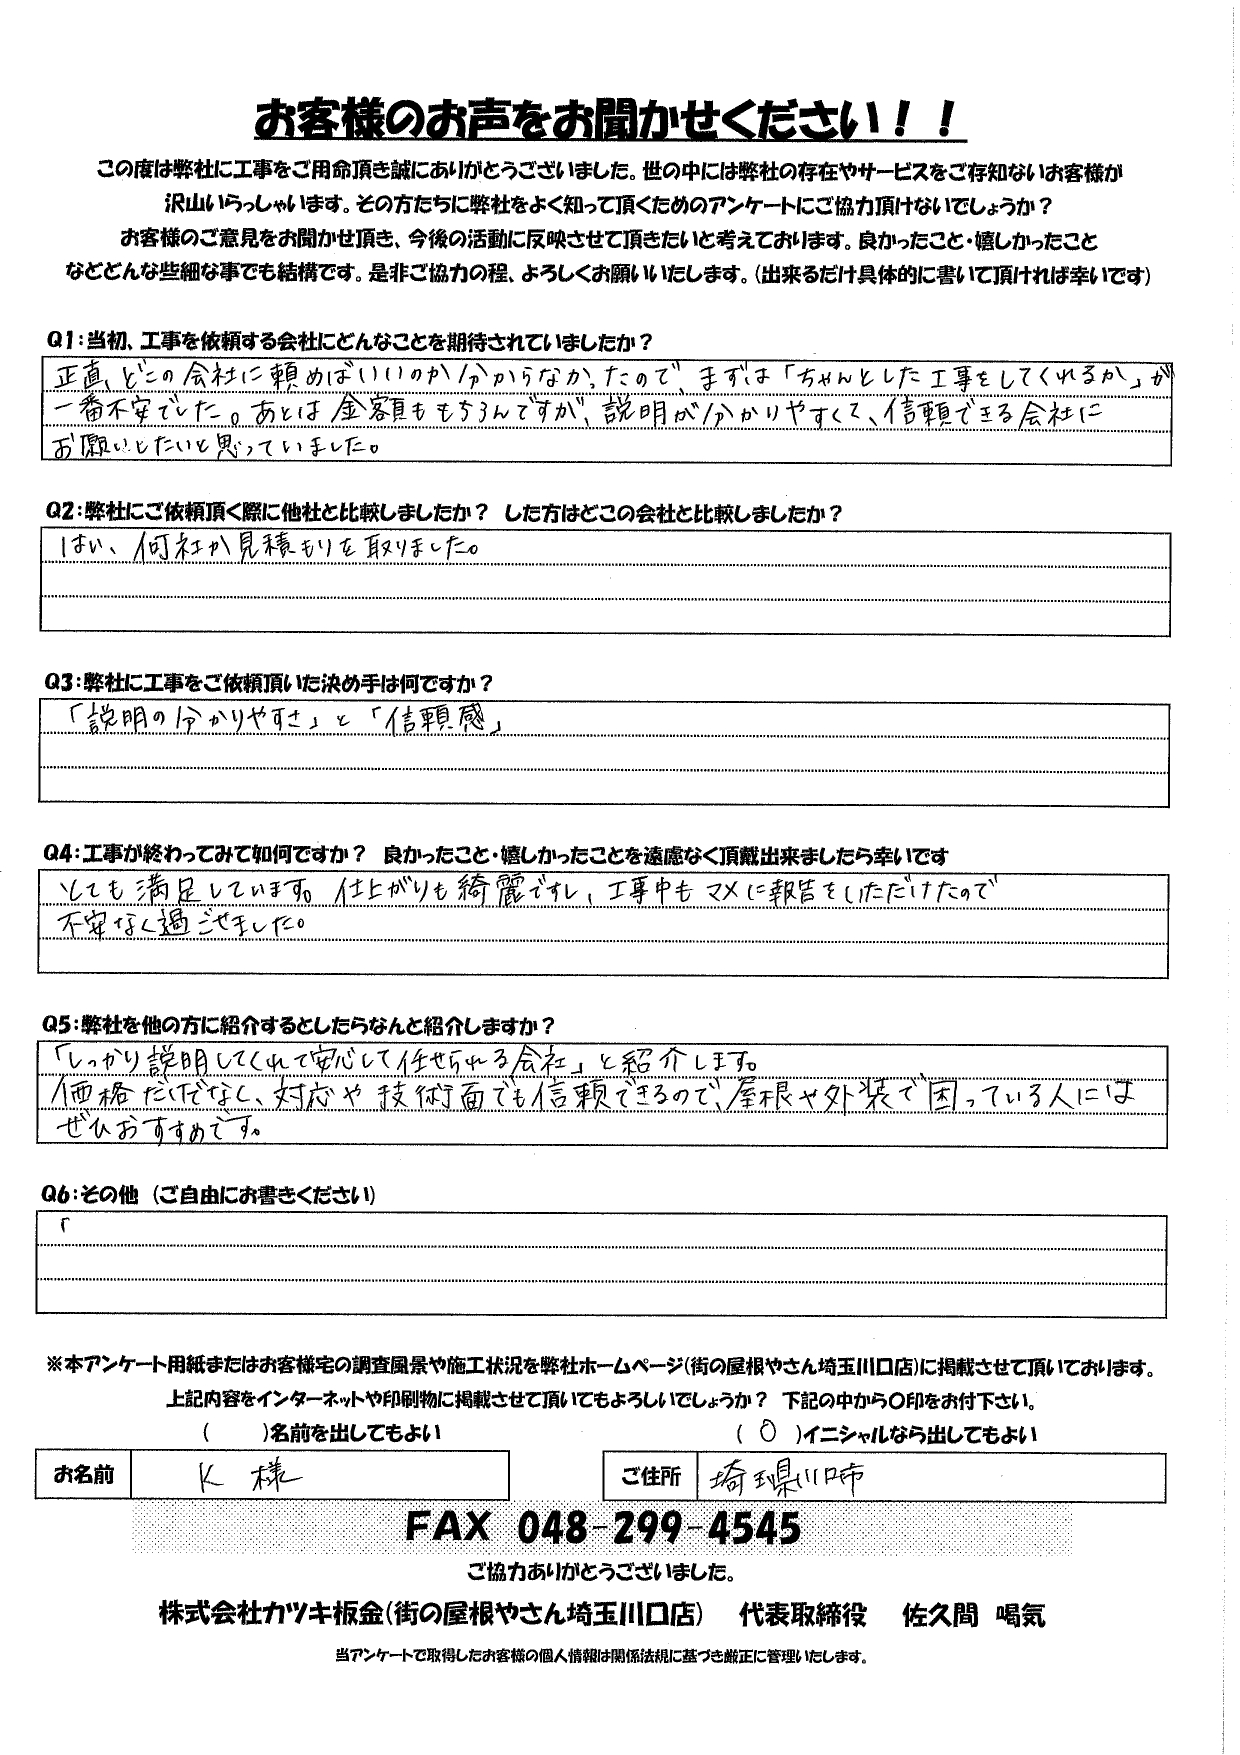 お客様のお声をお聞かせください！！
この度は弊社に工事をご用命頂き誠にありがとうございました。世の中には弊社の存在やサービスをご存知ないお客様が
沢山いらっしゃいます。その方たちに弊社をよく知って頂くためのアンケートにご協力頂けないでしょうか？
お客様のご意見をお聞かせ頂き、今後の活動に反映させて頂きたいと考えております。良かったこと・嬉しかったこと
などどんな些細な事でも結構です。是非ご協力の程、よろしくお願いいたします。(出来るだけ具体的に書いて頂ければ幸いです)
Q1：当初、工事を依頼する会社にどんなことを期待されていましたか？
正直、どこの会社に頼めばいいのか分からなかったので、まずは「ちゃんとした工事をしてくれるか」が
一番不安でした。あとは金額ももちろんですが、説明が分かりやすくて、信頼できる会社に
お願いしたいと思っていました。
Q2：弊社にご依頼頂く際に他社と比較しましたか？ した方はどこの会社と比較しましたか？
はい、何社か見積もりを取りました。
Q3：弊社に工事をご依頼頂いた決め手は何ですか？
「説明の分かりやすさ」と「信頼感」
Q4：工事が終わってみて如何ですか？ 良かったこと・嬉しかったことを遠慮なく頂戴出来ましたら幸いです
とても満足しています。仕上がりも綺麗ですし、工事中もマメに報告をいただけたので
不安なく過ごせました。
Q5：弊社を他の方に紹介するとしたらなんと紹介しますか？
「しっかり説明してくれて安心して任せられる会社」と紹介します。
価格だけでなく、対応や技術面でも信頼できるので、屋根や外装で困っている人には
ぜひおすすめです。
Q6：その他 (ご自由にお書きください)
「
※本アンケート用紙またはお客様宅の調査風景や施工状況を弊社ホームページ(街の屋根やさん埼玉川口店)に掲載させて頂いております。
上記内容をインターネットや印刷物に掲載させて頂いてもよろしいでしょうか？ 下記の中から○印をお付下さい。
( )名前を出してもよい ( ○ )イニシャルなら出してもよい
お名前 K 様 ご住所 埼玉県川口市
FAX 048-299-4545
ご協力ありがとうございました。
株式会社カツキ板金(街の屋根やさん埼玉川口店) 代表取締役 佐久間 喝気
当アンケートで取得したお客様の個人情報は関係法規に基づき厳正に管理いたします。